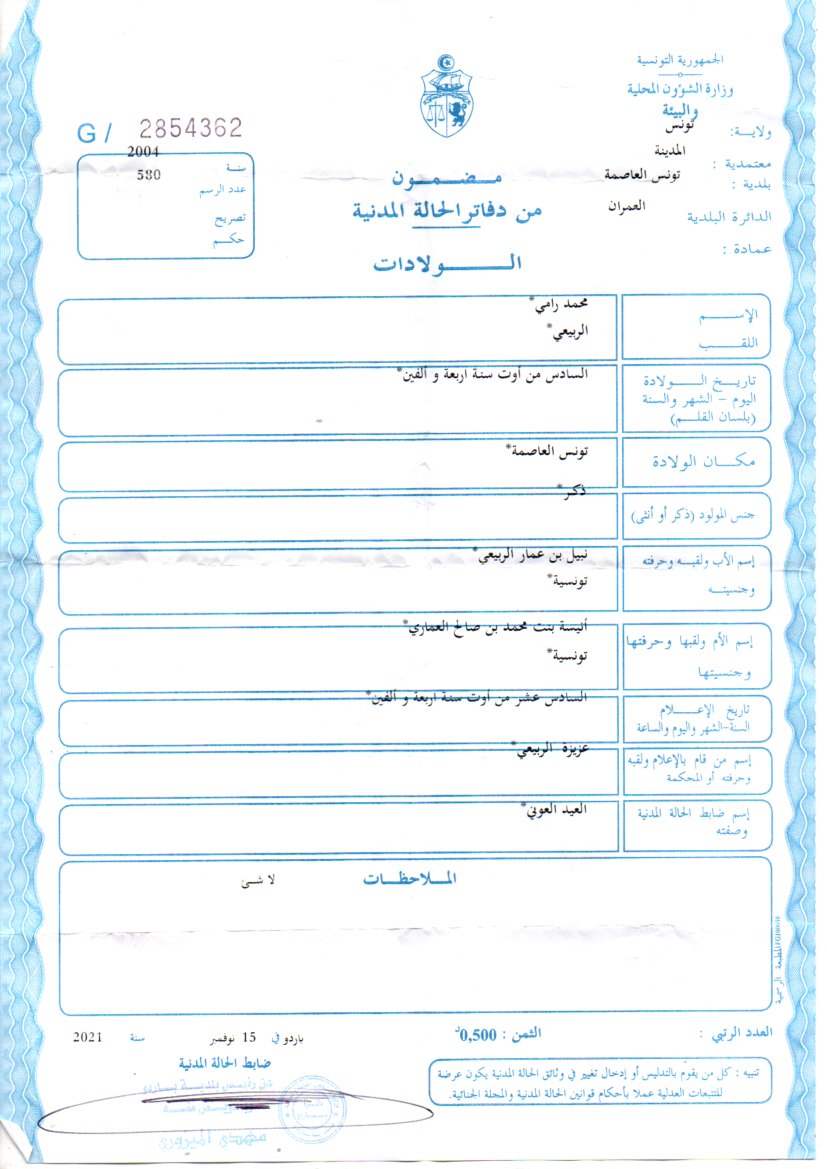 الجمهورية التونسية
وزارة الشؤون المحلية
والبيئة
ولاية: تونس
معتمدية : المدينة
بلدية : تونس العاصمة
الدائرة البلدية العمران
عمادة :
G / 2854362
سنة 2004
عدد الرسم 580
تصريح
حكم
مضمون
من دفاتر الحالة المدنية
الولادات
الإسم محمد رامي*
اللقب الربيعي*
تاريخ الولادة السادس من أوت سنة اربعة و ألفين*
اليوم - الشهر والسنة
(بلسان القلم)
مكان الولادة تونس العاصمة*
ذكر*
جنس المولود (ذكر أو أنثى)
إسم الأب ولقبه وحرفته نبيل بن عمار الربيعي*
وجنسيته تونسية*
أنيسة بنت محمد بن صالح العماري*
إسم الأم ولقبها وحرفتها
وجنسيتها تونسية*
السادس عشر من أوت سنة اربعة و ألفين*
تاريخ الإعلام
السنة-الشهر واليوم والساعة
عزيزة الربيعي*
إسم من قام بالإعلام ولقبه
وحرفته أو المحكمة
إسم ضابط الحالة المدنية العيد العوني*
وصفته
الملاحظات
لا شئ
المطبعة الرسمية
العدد الرتبي :
الثمن : 0,500د
باردو في 15 نوفمبر سنة 2021
ضابط الحالة المدنية
تنبيه : كل من يقوم بالتدليس أو إدخال تغيير في وثائق الحالة المدنية يكون عرضة
للتتبعات العدلية عملا بأحكام قوانين الحالة المدنية والمجلة الجنائية.